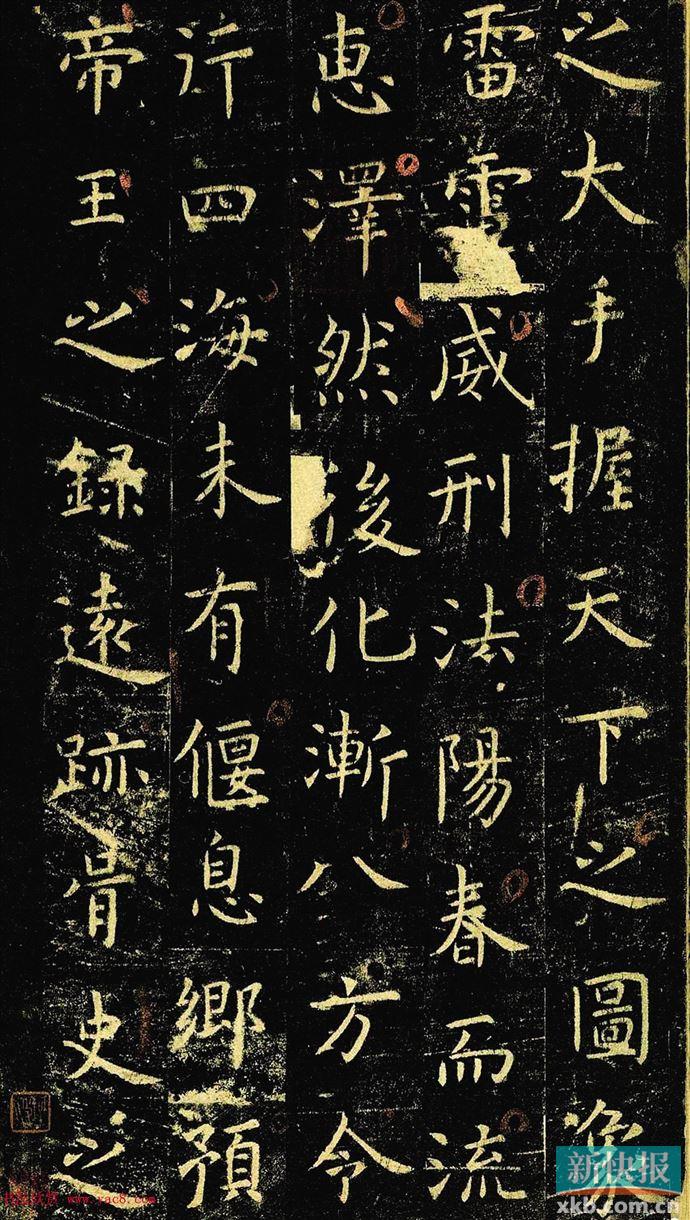 之大手握天下之圖
雷威刑法陽春而流
恵澤然後化漸八方令
行四海未有偃息鄉預
帝王之録遠跡胥史之
新快报
xkb.com.cn
www.rac8.com